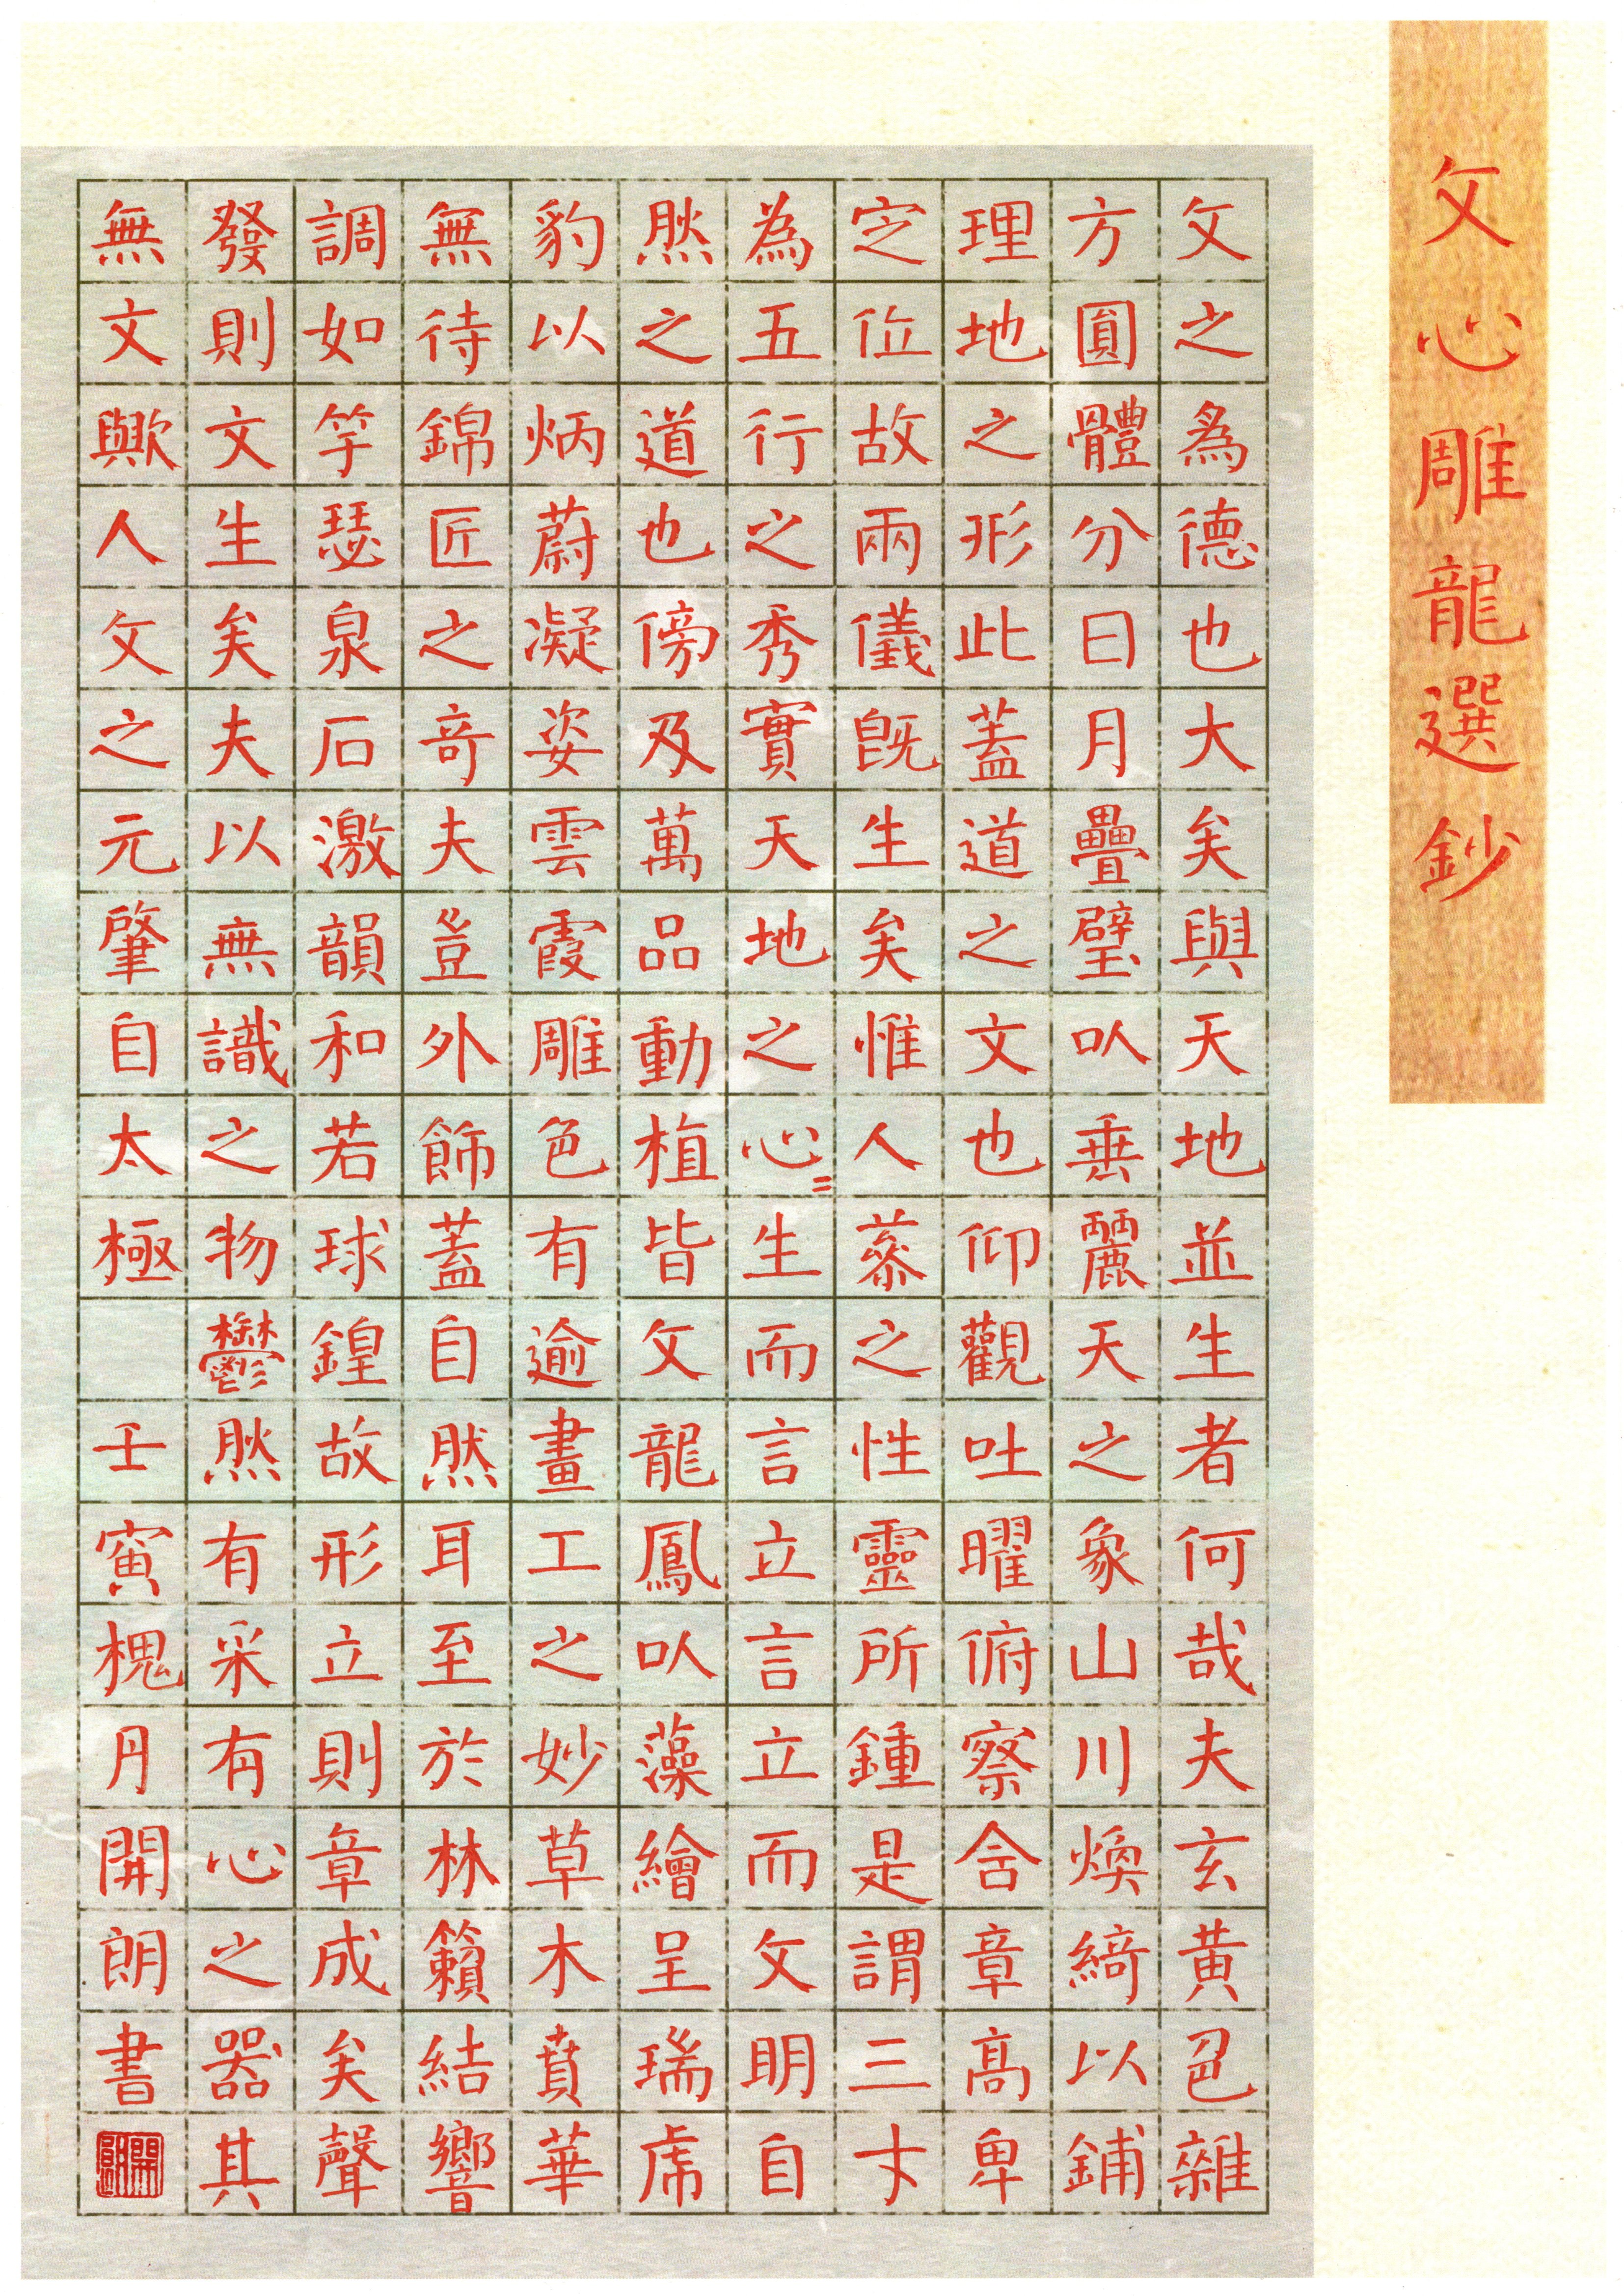 文心雕龍選鈔
文之爲德也大矣與天地並生者何哉夫玄黃色雜
方圓體分日月疊璧以垂麗天之象山川煥綺以鋪
理地之形此蓋道之文也仰觀吐曜俯察含章高卑
定位故兩儀既生矣惟人參之性靈所鍾是謂三才
為五行之秀實天地之心〻生而言立言立而文明自
然之道也傍及萬品動植皆文龍鳳以藻繪呈瑞虎
豹以炳蔚凝姿雲霞雕色有逾畫工之妙草木賁華
無待錦匠之奇夫豈外飾蓋自然耳至於林籟結響
調如竽瑟泉石激韻和若球鍠故形立則章成矣聲
發則文生矣夫以無識之物鬱然有采有心之器其
無文歟人文之元肇自太極 壬寅槐月開朗書
開朗